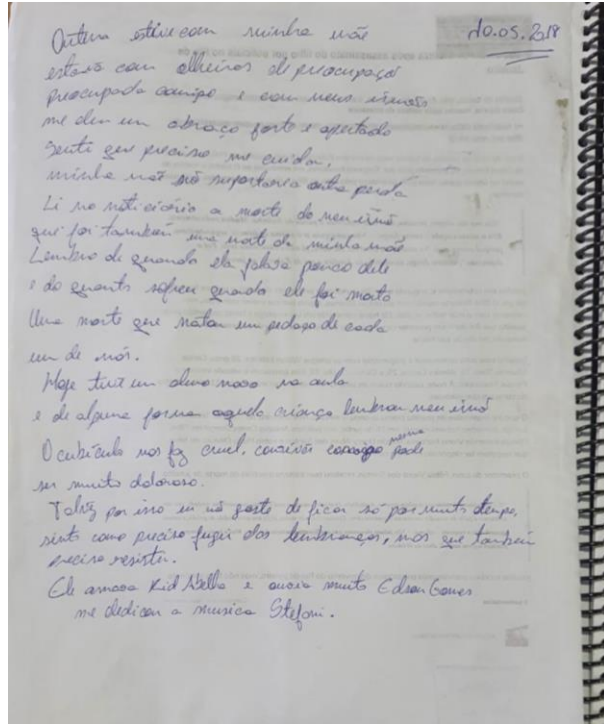 10.05.2018
Ontem estive com minha mãe
estava com olheiros de preocupação
preocupada comigo e com meus irmãos
me deu um abraço forte e apertado
senti que preciso me cuidar,
minha mãe não suportaria outra perda
Li no noticiário a morte do meu irmão
que foi também uma morte da minha mãe
Lembro de quando ela falava pouco dele
e do quanto sofreu quando ele foi morto
Uma morte que matou um pedaço de cada
um de nós.
Hoje tive um aluno novo na aula
e de alguma forma aquela criança lembrou meu irmão
O cubículo nos faz cruel, conviver comigo mesma pode
ser muito doloroso.
Talvez por isso eu não goste de ficar só por muito tempo,
sinto como preciso fugir das lembranças, mas que também
preciso resistir.
Ele amava Kid Abelha e ouvia muito Edson Gomes
me dedicou a musica Stefani.